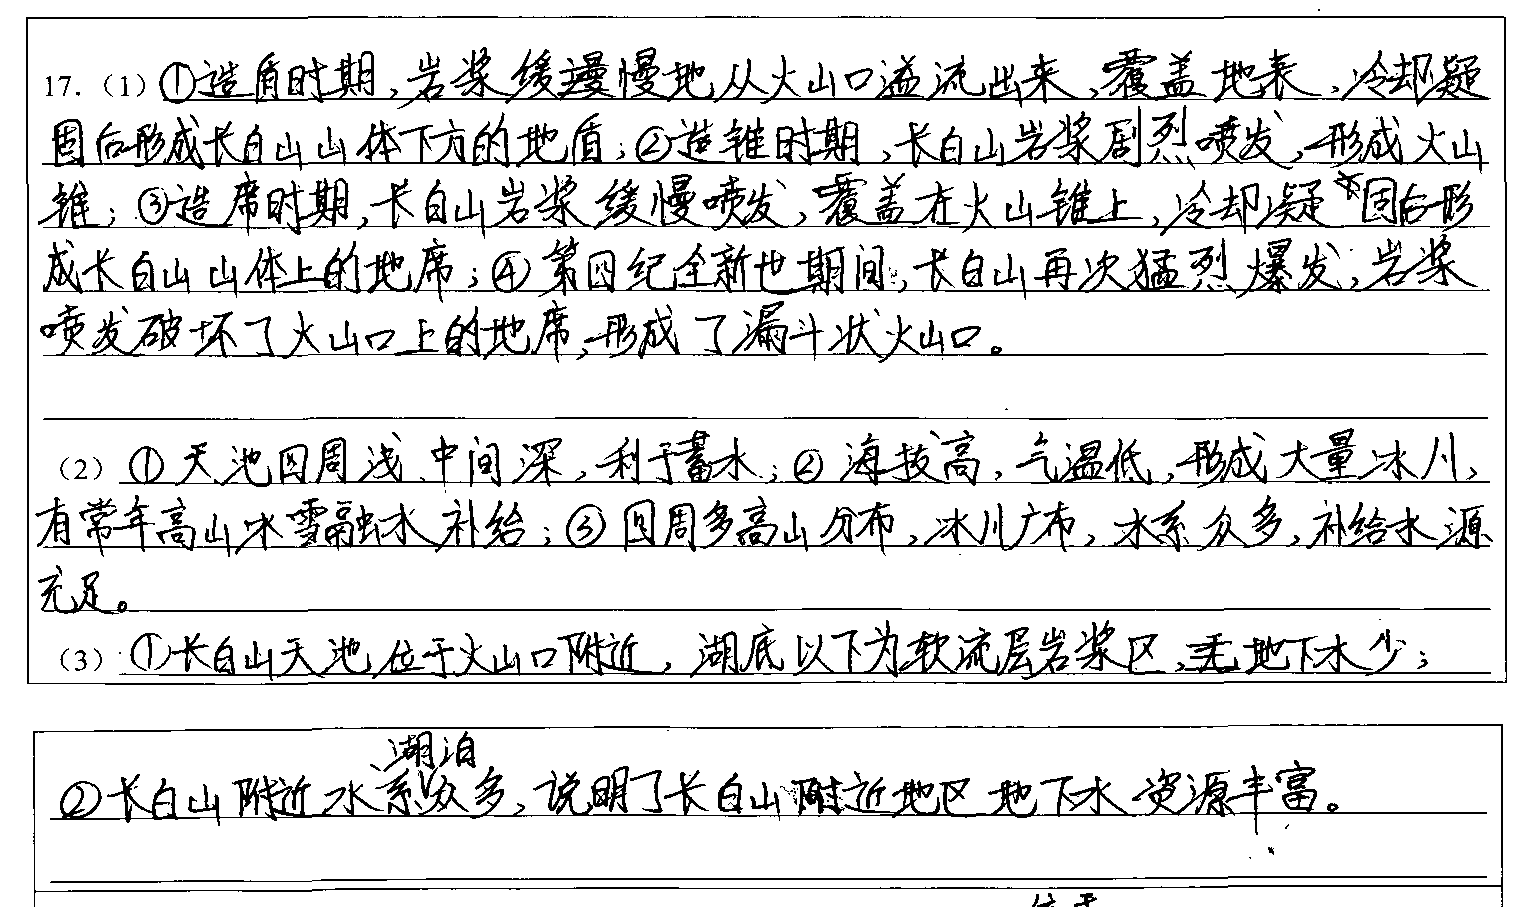 17.（1）①造盾时期，岩浆缓慢地从火山口溢流出来，覆盖地表，冷却凝
固后形成长白山山体下方的地盾；②造锥时期，长白山岩浆剧烈喷发，形成火山
锥；③造席时期，长白山岩浆缓慢喷发，覆盖在火山锥上，冷却凝固后形
成长白山山体上的地席；④第四纪全新世期间，长白山再次猛烈爆发，岩浆
喷发破坏了火山口上的地席，形成了漏斗状火山口。
（2）①天池四周浅，中间深，利于蓄水；②海拔高，气温低，形成大量冰川，
有常年高山冰雪融水补给；③四周多高山分布，冰川广布，水系众多，补给水源
充足。
（3）①长白山天池位于火山口附近，湖底以下为软流层岩浆区，地下水少；
②长白山附近水系、湖泊众多，说明了长白山附近地区地下水资源丰富。